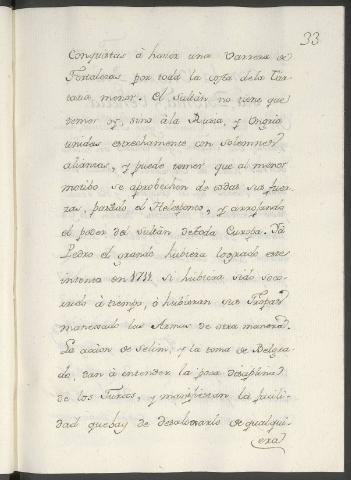 33
Conquistas à haver una Varrera de
Fortalezas por toda la costa dela Tar-
taria menor. El Sultàn no tiene que
temer oy, sino à la Rusia, y Ongria
unidas estrechamente con solemnes
alianzas, y puede temer que al menor
motibo se aprobechen de todas sus fuer-
zas, pasàdo el Helesponto, y arrojando
el poder del sultàn detoda Europa. Ya
Pedro el grande hubiera logrado este
intento en 1711. si hubiera sido soco-
rrido à tiempo, ò hubieran sus Tropas
manexado las Armas de otra manera.
La accion de Selim, y la toma de Belgra-
do, dan à entender la poca disciplina
de los Turcos, y manifiestan la facili-
dad que hay de desaloxarlo de qualqui-
era